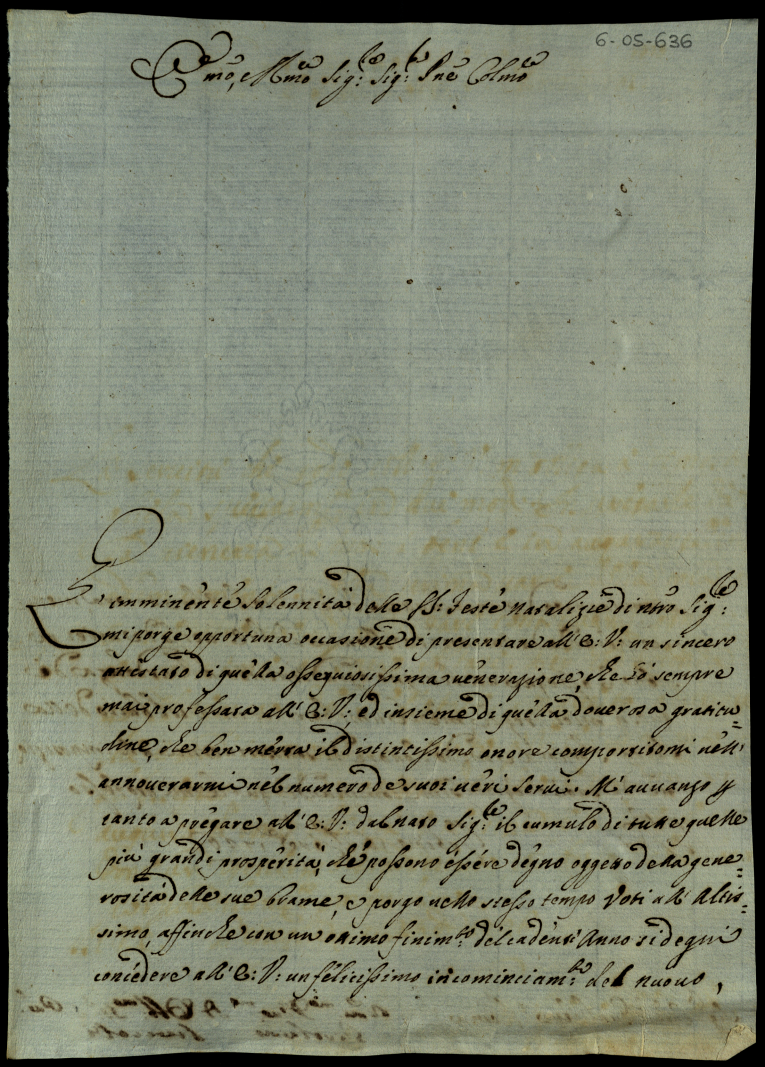 6-05-636
E.mo, e R.mo Sig.re Sig.re P.ne Col.mo
L'imminente solennità delle SS: Feste natalizie di n̄rō Sig.re
mi porge opportuna occasione di presentare all'E: V: un sincero
attestato di quella ossequiosissima venerazione, che hò sempre
mai professata all'E: V:, ed insieme di quella doverosa gratitu=
dine, che ben merta il distintissimo onore compartitomi nell'
annoverarmi nel numero de suoi veri servi. M'avvanzo p
tanto a pregare all'E: V: dal nato Sig.re il cumulo di tutte quelle
più grandi prosperità, che possono essere degno oggetto della gene=
rosità delle sue brame, e porgo nello stesso tempo Voti all'Altis=
simo, affinche con un ottimo finim.to del cadent'Anno si degni
concedere all'E: V: un felicissimo incominciam.to del nuovo,